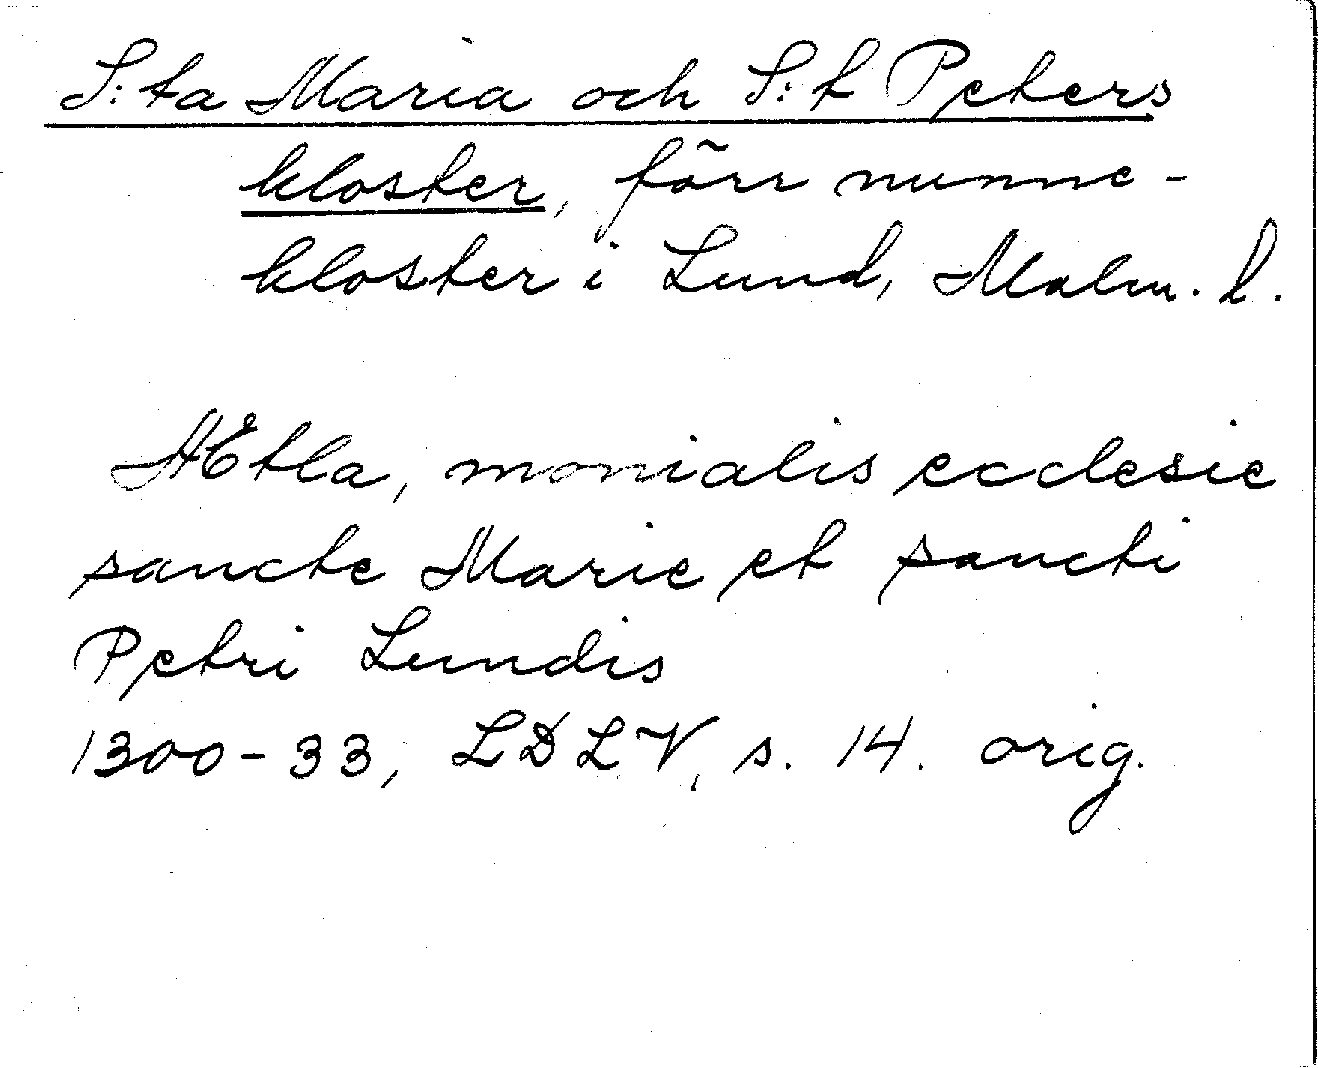 S:ta Maria och S:t Peters
kloster, förr nunne-
kloster i Lund, Malm. l.
Ætla, monialis ecclesie
sancte Marie et sancti
Petri Lundis
1300-33, LDLV, s. 14. orig.